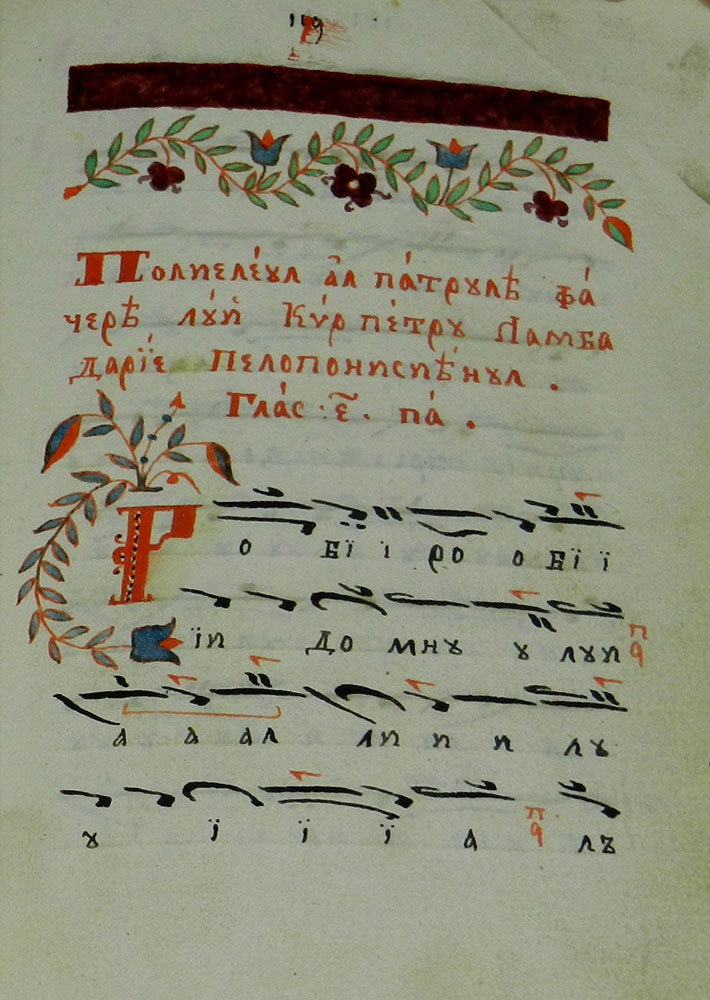 119
Полиелéꙋл а҆́л пáтрꙋлѣ фá
черѣ лꙋ́й Кѵ́р пéтрꙋ Ламба
дарїе Пелопониси́ѣнꙋл .
Глáс · е҃ · пá .
Р о бї ї ро о бї ї
їи до мнꙋ ꙋ лꙋи па
а а ал ли и и лꙋ
ꙋ ї ї ї а па лъ